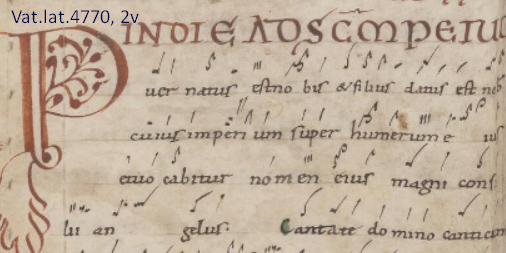 Vat.lat.4770, 2v
INDIE ADSC̄M PETRU
Puer natus est no bis & filius datus est nob
cuius imperi um super humerum e ius
etuo cabitur nomen eius magni consi
lii an gelus. Cantate domino canticum